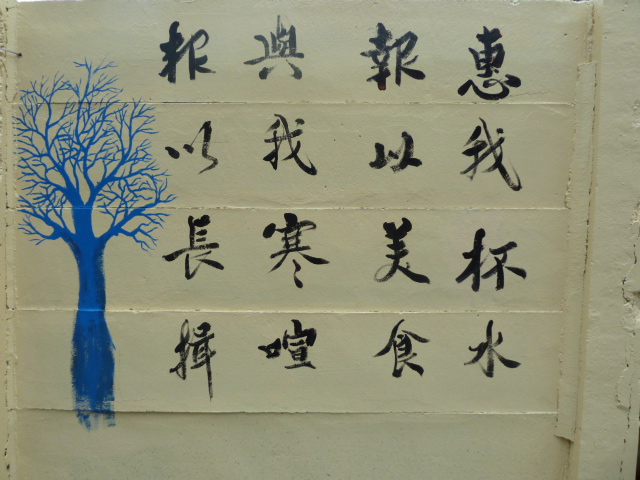 惠我杯水
報以美食
與我寒喧
报以長揖